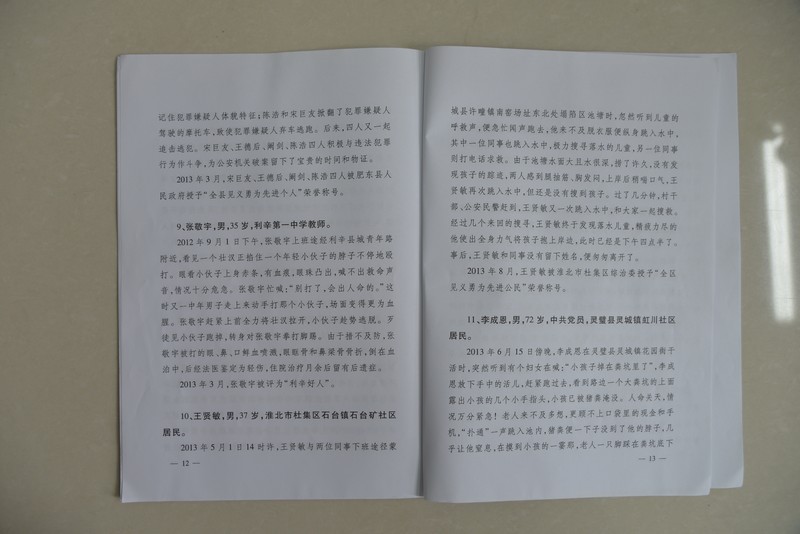 记住犯罪嫌疑人体貌特征;陈浩和宋巨友掀翻了犯罪嫌疑人
驾驶的摩托车,致使犯罪嫌疑人弃车逃跑。后来,四人又一起
追击逃犯。宋巨友、王德后、阚剑、陈浩四人积极与违法犯罪
行为作斗争,为公安机关破案留下了宝贵的时间和物证。
2013年3月,宋巨友、王德后、阚剑、陈浩四人被肥东县人
民政府授予“全县见义勇为先进个人”荣誉称号。
9、张敬宇,男,35岁,利辛第一中学教师。
2012年9月1日下午,张敬宇上班途经利辛县城青年路
附近,看见一个壮汉正掐住一个年轻小伙子的脖子不停地殴
打。眼看小伙子上身赤条,有血痕,眼珠凸出,喊不出救命声
音,情况十分危急。张敬宇忙喊:“别打了,会出人命的。”这
时又一中年男子走上来动手打那个小伙子,场面变得更为血
腥。张敬宇赶紧上前全力将壮汉拉开,小伙子趁势逃脱。歹
徒见小伙子跑掉,转身对张敬宇拳打脚踢。由于措不及防,张
敬宇被打的眼、鼻、口鲜血喷溅,眼眶骨和鼻梁骨骨折,倒在血
泊中,后经法医鉴定为轻伤,住院治疗月余后留有后遗症。
2013年3月,张敬宇被评为“利辛好人”。
10、王贤敏,男,37岁,淮北市杜集区石台镇石台矿社区
居民。
2013年5月1日14时许,王贤敏与两位同事下班途径蒙
— 12 —
城县许疃镇南窑场址东北处塌陷区池塘时,忽然听到儿童的
呼救声,便急忙闻声跑去,他来不及脱衣服便纵身跳入水中,
其中一位同事也跳入水中,极力搜寻落水的儿童,另一位同事
则打电话求救。由于池塘水面大且水很深,捞了许久,没有发
现孩子的踪迹,两人感到腿抽筋、胸发闷,上岸后稍喘口气,王
贤敏再次跳入水中,但还是没有搜到孩子。过了几分钟,村干
部、公安民警赶到,王贤敏又一次跳入水中,和大家一起搜救。
经过几个来回的搜寻,王贤敏终于发现落水儿童,精疲力尽的
他使出全身力气将孩子抱上岸边,此时已经是下午四点半了。
事后,王贤敏和同事没有留下姓名,便匆匆离开了。
2013年8月,王贤敏被淮北市杜集区综治委授予“全区
见义勇为先进公民”荣誉称号。
11、李成恩,男,72岁,中共党员,灵璧县灵城镇虹川社区
居民。
2013年6月15日傍晚,李成恩在灵璧县灵城镇花园街干
活时,突然听到有个妇女在喊:“小孩子掉在粪坑里了”,李成
恩放下手中的活儿,赶紧跑过去,看到路边一个大粪坑的上面
露出小孩的几个小手指头,小孩已被猪粪淹没。人命关天,情
况万分紧急!老人来不及多想,更顾不上口袋里的现金和手
机,“扑通”一声跳入池内,猪粪便一下子没到了他的脖子,几
乎让他窒息,在摸到小孩的一霎那,老人一只脚踩在粪坑底下
— 13 —